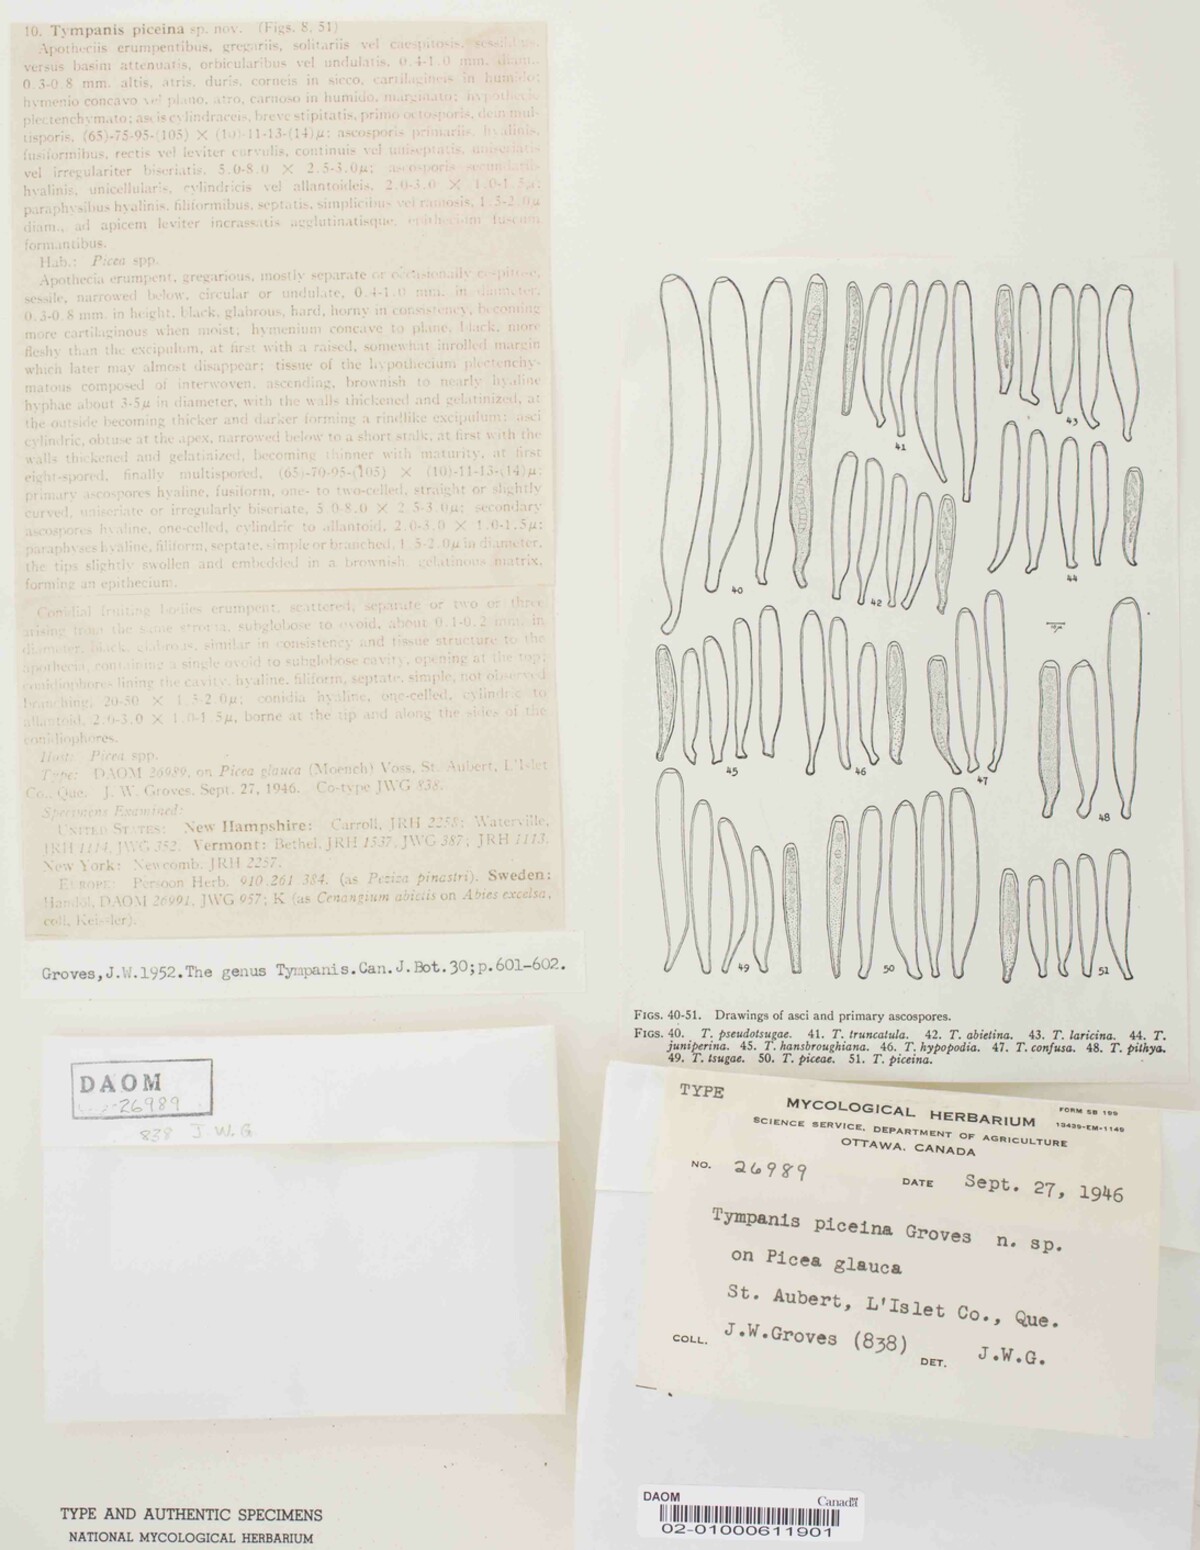 10. Tympanis piceina sp. nov. (Figs. 8, 51)
Apotheciis erumpentibus, gregariis, solitariis vel caespitosis, sessilibus,
versus basim attenuatis, orbicularibus vel undulatis, 0.4-1.0 mm. diam.,
0.3-0.8 mm. altis, atris, duris, corneis in sicco, cartilagineis in humido;
hymenio concavo vel plano, atro, carnoso in humido, marginato; hypothecio
plectenchymato; ascis cylindraceis, breve stipitatis, primo octosporis, dein mul-
tisporis, (65)-75-95-(105) × (10)-11-13-(14)µ; ascosporis primariis, hyalinis,
fusiformibus, rectis vel leviter curvulis, continuis vel uniseptatis, uniseriatis
vel irregulariter biseriatis, 5.0-8.0 × 2.5-3.0µ; ascosporis secundariis
hyalinis, unicellularis, cylindricis vel allantoideis, 2.0-3.0 × 1.0-1.5µ;
paraphysibus hyalinis, filiformibus, septatis, simplicibus vel ramosis, 1.5-2.0µ
diam., ad apicem leviter incrassatis agglutinatisque, epithecium fuscum
formantibus.
Hab.: Picea spp.
Apothecia erumpent, gregarious, mostly separate or occasionally cespitose,
sessile, narrowed below, circular or undulate, 0.4-1.0 mm. in diameter,
0.3-0.8 mm. in height, black, glabrous, hard, horny in consistency, becoming
more cartilaginous when moist; hymenium concave to plane, black, more
fleshy than the excipulum, at first with a raised, somewhat inrolled margin
which later may almost disappear; tissue of the hypothecium plectenchy-
matous composed of interwoven, ascending, brownish to nearly hyaline
hyphae about 3-5µ in diameter, with the walls thickened and gelatinized, at
the outside becoming thicker and darker forming a rindlike excipulum; asci
cylindric, obtuse at the apex, narrowed below to a short stalk, at first with the
walls thickened and gelatinized, becoming thinner with maturity, at first
eight-spored, finally multispored, (65)-70-95-(105) × (10)-11-13-(14)µ;
primary ascospores hyaline, fusiform, one- to two-celled, straight or slightly
curved, uniseriate or irregularly biseriate, 5.0-8.0 × 2.5-3.0µ; secondary
ascospores hyaline, one-celled, cylindric to allantoid, 2.0-3.0 × 1.0-1.5µ;
paraphyses hyaline, filiform, septate, simple or branched, 1.5-2.0µ in diameter,
the tips slightly swollen and embedded in a brownish, gelatinous matrix,
forming an epithecium.
Conidial fruiting bodies erumpent, scattered, separate or two or three
arising from the same stroma, subglobose to ovoid, about 0.1-0.2 mm. in
diameter, black, glabrous, similar in consistency and tissue structure to the
apothecia, containing a single ovoid to subglobose cavity, opening at the top;
conidiophores lining the cavity, hyaline, filiform, septate, simple, not observed
branching, 20-50 × 1.5-2.0µ; conidia hyaline, one-celled, cylindric to
allantoid, 2.0-3.0 × 1.0-1.5µ, borne at the tip and along the sides of the
conidiophores.
Host: Picea spp.
Type: DAOM 26989, on Picea glauca (Moench) Voss, St. Aubert, L'Islet
Co., Que. J. W. Groves. Sept. 27, 1946. Co-type JWG 838.
Specimens Examined:
UNITED STATES: New Hampshire: Carroll, JRH 2258; Waterville,
JRH 1114, JWG 352. Vermont: Bethel, JRH 1537, JWG 387; JRH 1113.
New York: Newcomb, JRH 2257.
EUROPE: Persoon Herb. 910.261 384. (as Peziza pinastri). Sweden:
Handöl, DAOM 26991, JWG 957; K (as Cenangium abietis on Abies excelsa,
coll. Keissler).
Groves,J.W.1952.The genus Tympanis.Can.J.Bot.30;p.601-602.
DAOM
26989
838 J.W.G.
TYPE AND AUTHENTIC SPECIMENS
NATIONAL MYCOLOGICAL HERBARIUM
40
41
42
43
44
45
46
47
48
49
50
51
FIGS. 40-51. Drawings of asci and primary ascospores.
FIGS. 40. T. pseudotsugae. 41. T. truncatula. 42. T. abietina. 43. T. laricina. 44. T.
juniperina. 45. T. hansbroughiana. 46. T. hypopodia. 47. T. confusa. 48. T. pithya.
49. T. tsugae. 50. T. piceae. 51. T. piceina.
TYPE
MYCOLOGICAL HERBARIUM
FORM SB 199
13439-EM-1149
SCIENCE SERVICE, DEPARTMENT OF AGRICULTURE
OTTAWA, CANADA
NO. 26989
DATE Sept. 27, 1946
Tympanis piceina Groves n. sp.
on Picea glauca
St. Aubert, L'Islet Co., Que.
COLL. J.W.Groves (838)
DET. J.W.G.
DAOM
Canada
02-01000611901